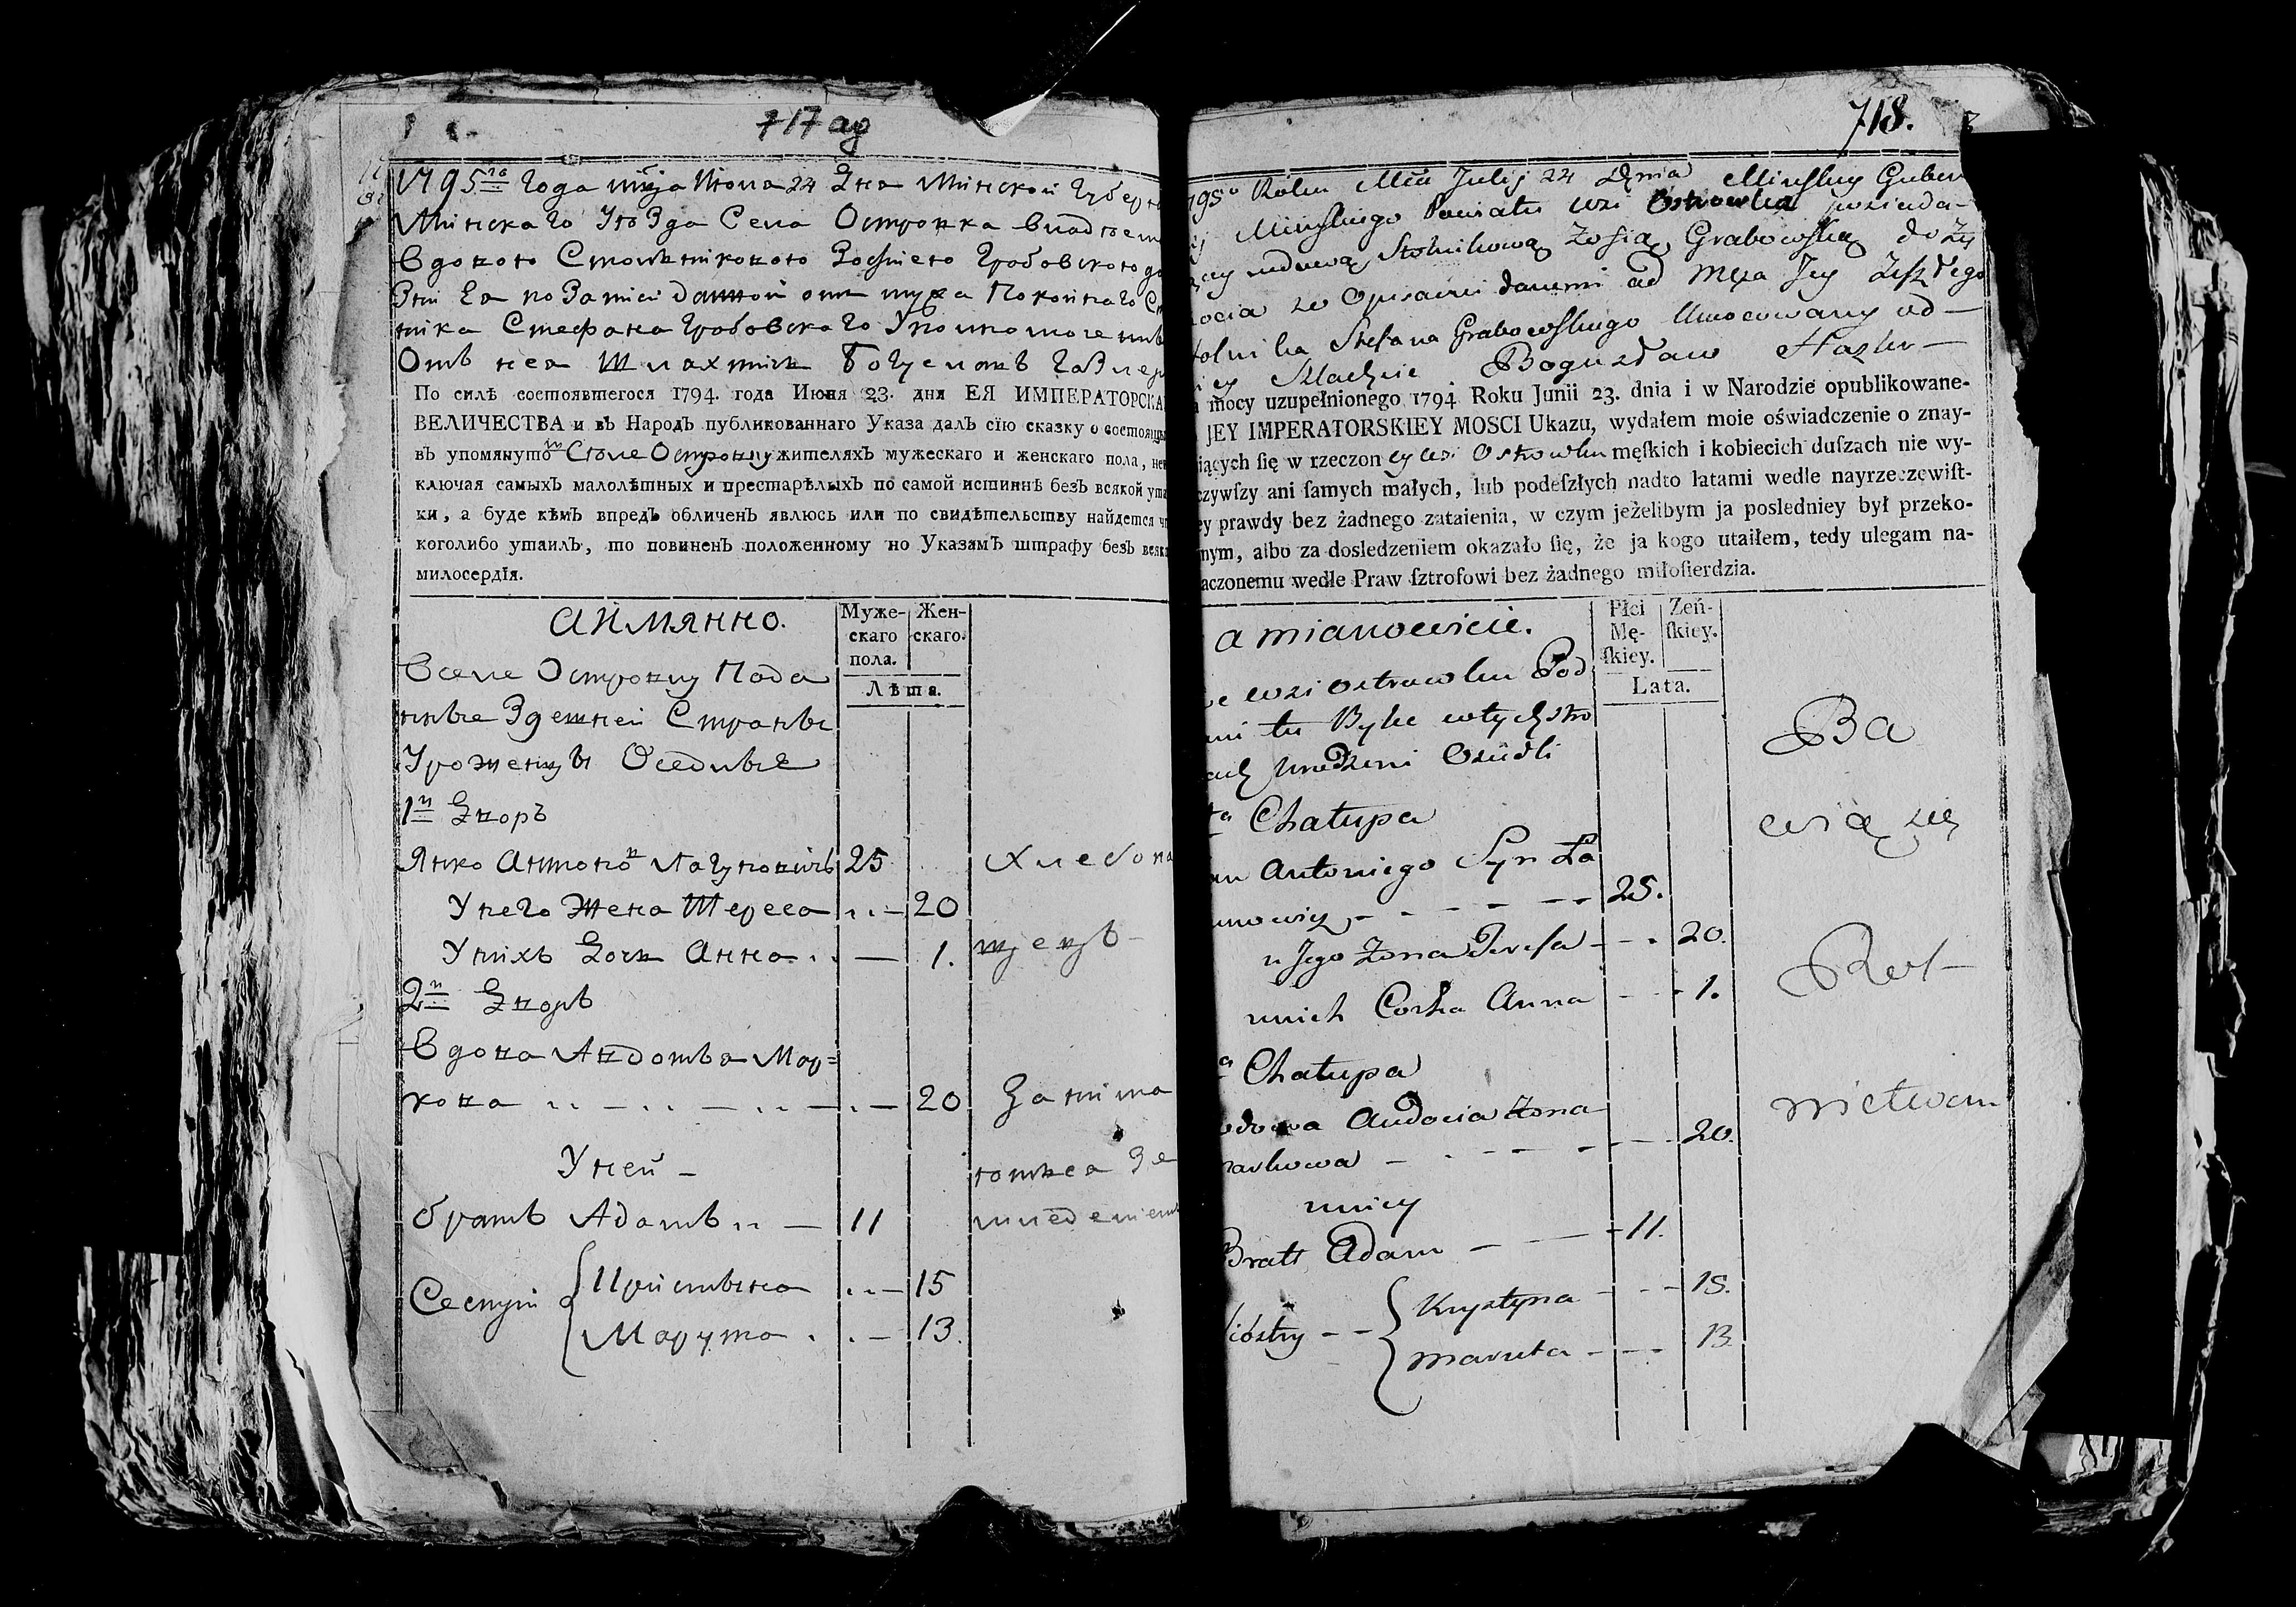 717 ag
1795го Года мсца Июля 24 Дня Минской Губер
Минскаго Уезда Села Островка владеем
Вдовою Столниковою Зофиею Грабовскою до
по Записи данной отъ мужа Покойнаго
ника Стефана Грабовскаго Уполномоченны
Отъ нея Шляхтичь Богуславъ
По силѣ состоявшегося 1794. года Июня 23. дня ЕЯ ИМПЕРАТОРСКА
ВЕЛИЧЕСТВА и въ Народъ публикованнаго Указа далъ сїю сказку о состоящ
въ упомянуто м Селе Островку жителяхъ мужескаго и женскаго пола, не
ключая самыхъ малолѣтныхъ и престарѣлыхъ по самой истиннѣ безъ всякой ута
ки, а буде кѣмъ впредъ обличенъ явлюсь или по свидѣтельству найдется ч
коголибо утаилъ, то повиненъ положенному по Указамъ штрафу безъ всяк
милосердїя.
Аимянно.
Муже-
скаго
пола.
Жен-
скаго.
Лѣта.
Вселе Островку Подa
нные Здешней Страны
Уроженцы Оседлые
1й Дворъ
Янко Антоновъ Лагуновичь 25 Хлебопа
У него Жена Тереса 20
У нихъ Дочь Анна 1. шецъ
2й Дворъ
Вдова Авдотья Мар=
кова 20 Занима
У ней ются Зе
братъ Адамъ 11 мледелием
Сестры Кристына 15
Марута 13.
718.
795o Roku Mca Julij 24 Dnia Minskey Guber
Minskiego Powiatu wsi Ostrowka posiada-
cey wdową Stolnikową Zofią Grabowską doży
ocia ze Opisaniu danemi od Męża Jey Zeszłego
tolnika Stefana Grabowskiego Umocowany od-
iey Szlachcic Bogusław
mocy uzupełnionego 1794 Roku Junii 23. dnia i w Narodzie opublikowane-
JEY IMPERATORSKIEY MOSCI Ukazu, wydałem moie oświadczenie o znay-
iących ſię w rzeczon ey wsi Ostrowku męſkich i kobiecich duſzach nie wy-
czywſzy ani ſamych małych, lub podeſzłych nadto latami wedle nayrzeczewiſt-
ey prawdy bez żadnego zataienia, w czym jeżelibym ja posledniey był przeko-
nym, albo za dosledzeniem okazało ſię, że ja kogo utaiłem, tedy ulegam na-
aczonemu wedle Praw ſztrofowi bez żadnego miłoſierdzia.
a mianowicie.
Płci
Mę-
ſkiey.
Zeń-
ſkiey.
Lata.
we wsi Ostrowku Pod
ani tu Byłe wtych stro
ach Urodzeni Osiedli
Ba
ta Chałupa
wią się
an Antoniego Syn Ła
unowicz 25.
u Jego Zona Teresa 20.
Rol-
unich Corka Anna 1.
a Chałupa
nictwem
dowa Audocia Zona
arkowa 20.
uniey
Bratt Adam 11.
iostry Krystyna 15.
Maruta 13.